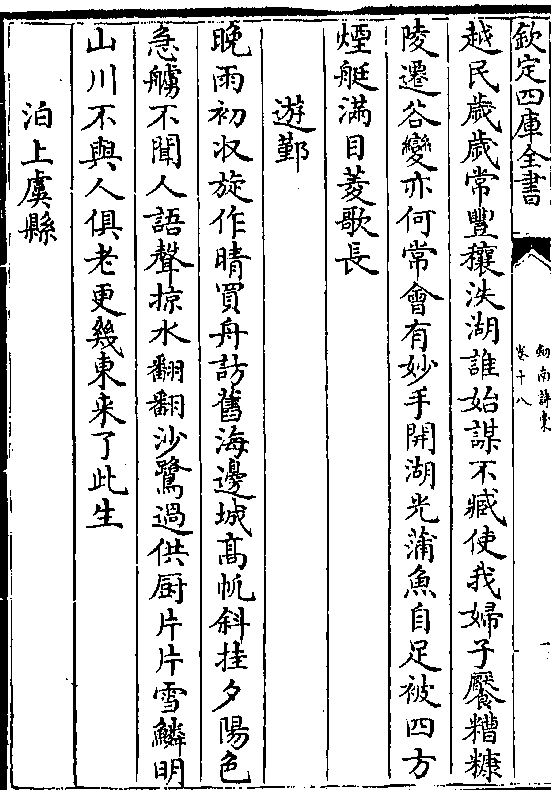 欽定四庫全書
劒南詩稾
卷十八
越民歲歲常豐穰泆湖誰始謀不臧使我婦子饜糟糠
陵遷谷變亦何常會有妙手開湖光蒲魚自足被四方
煙艇滿目菱歌長
遊鄞
晚雨初收旋作晴買舟訪舊海邊城髙帆斜挂夕陽色
急艣不聞人語聲掠水翻翻沙鷺過供厨片片雪鱗明
山川不與人俱老更幾東来了此生
泊上虞縣